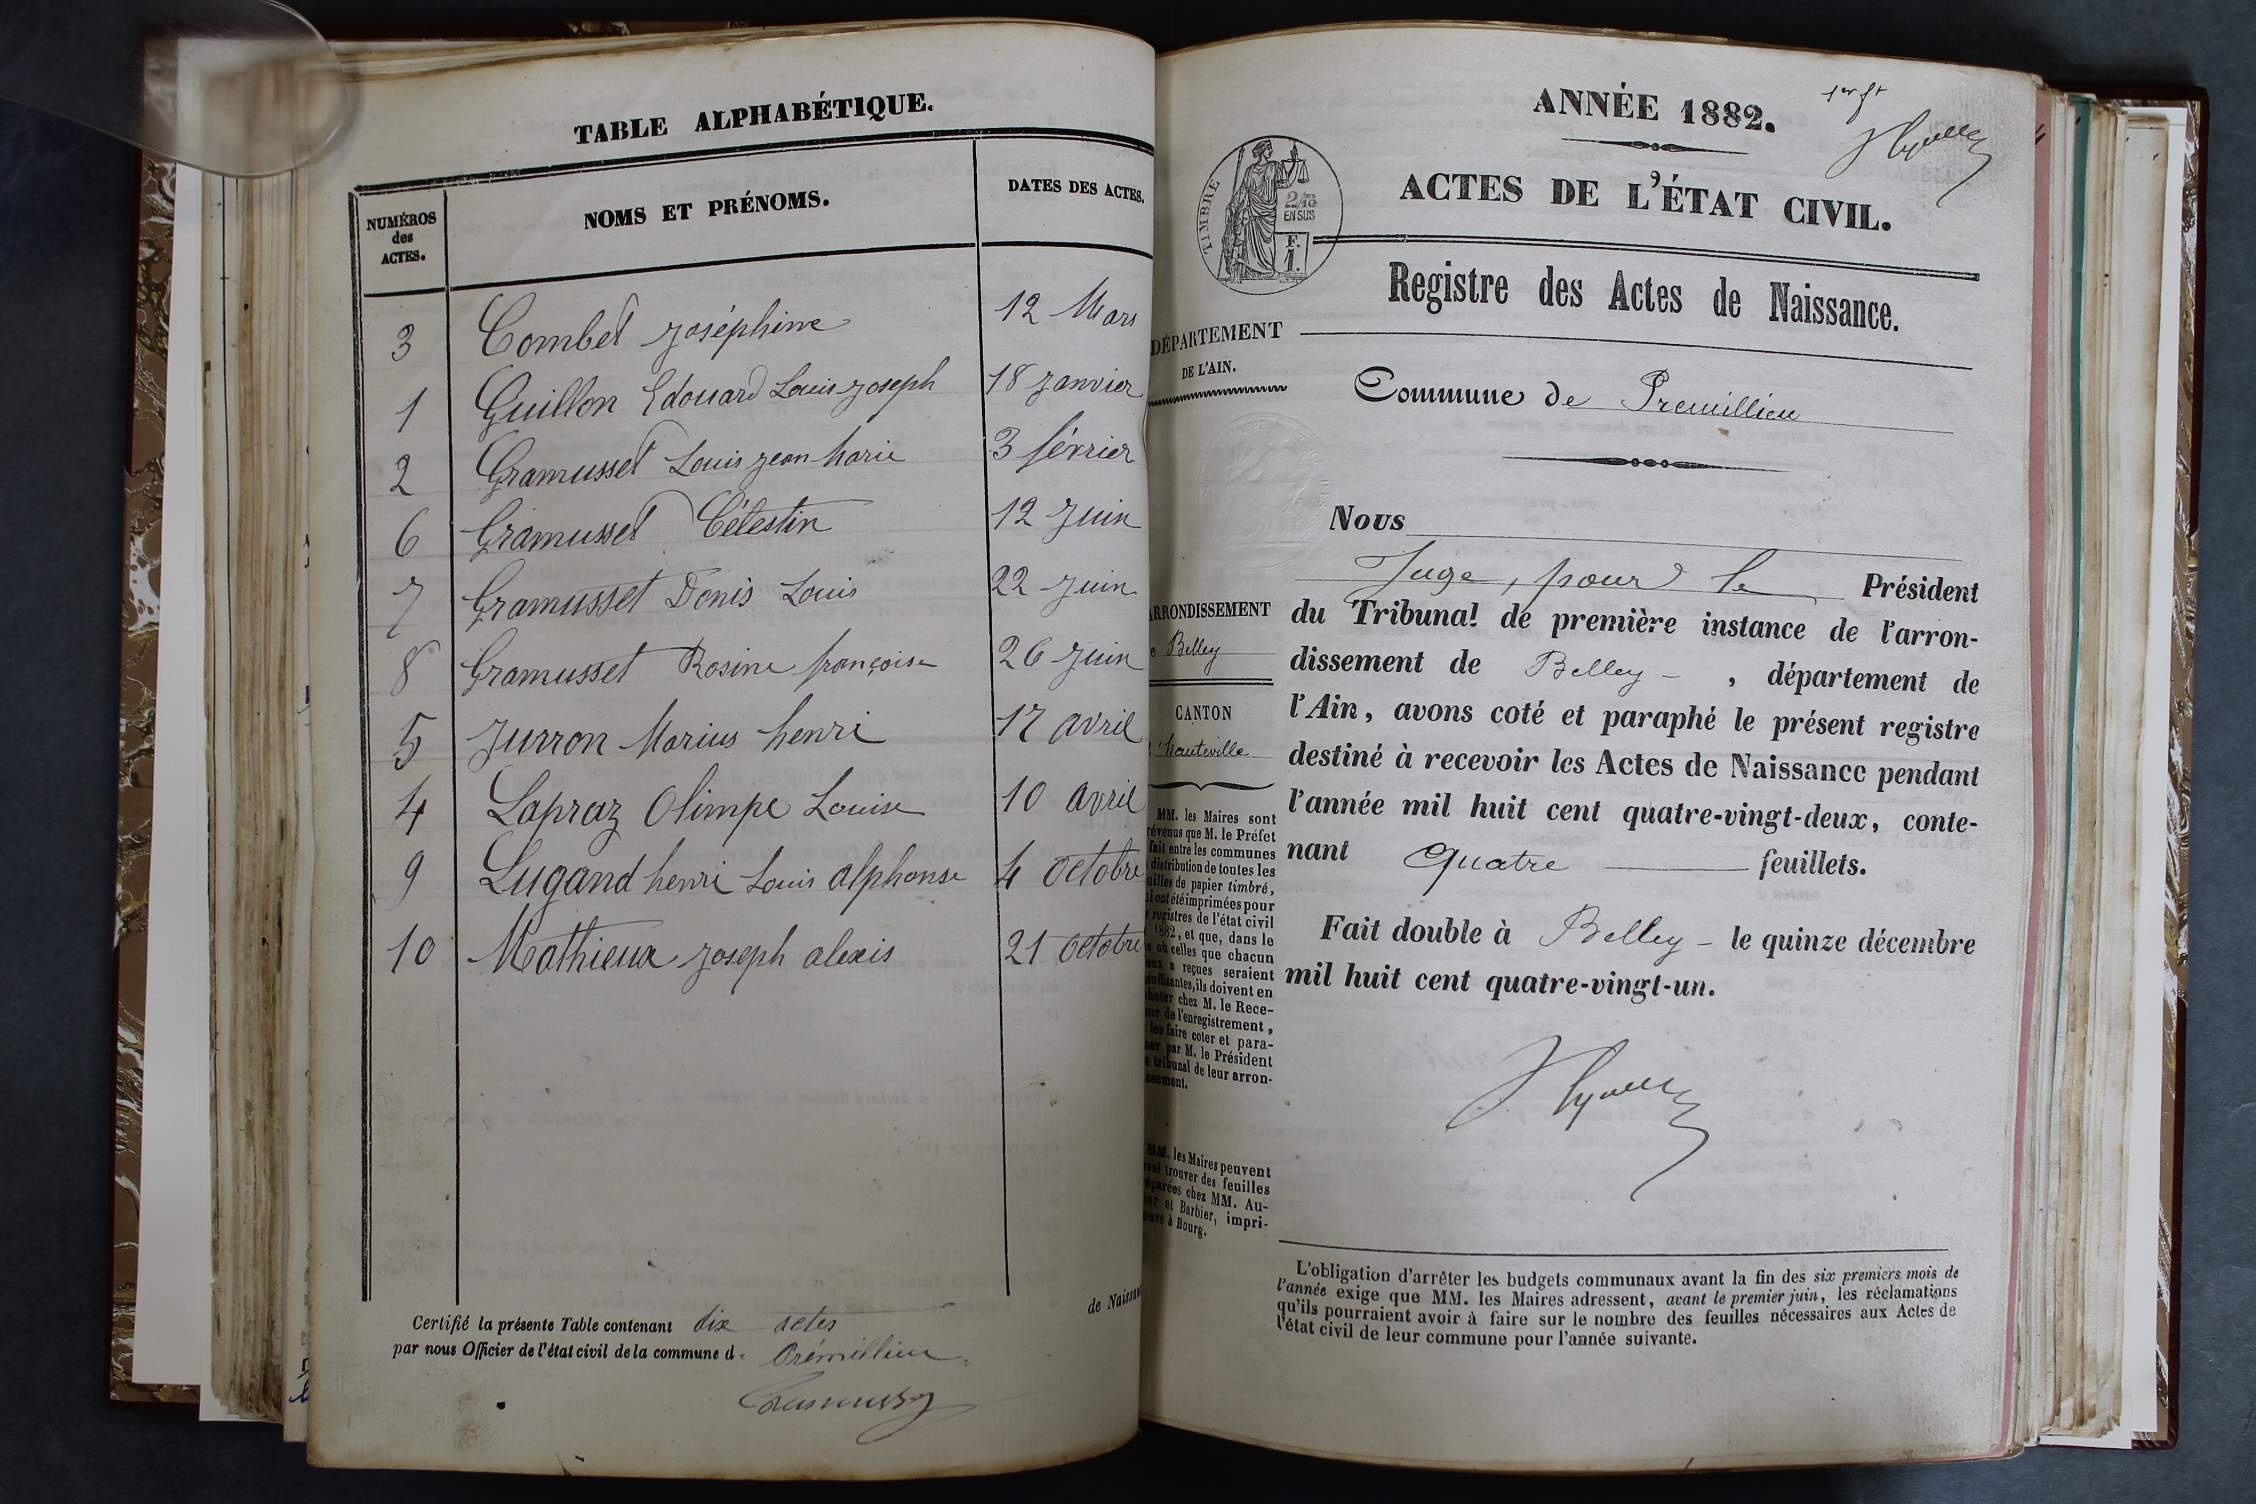 TABLE ALPHABÉTIQUE.
NUMÉROS
des
ACTES.
NOMS ET PRÉNOMS.
DATES DES ACTES.
3 Combet Joséphine 12 Mars
1 Guillon Edouard Louis Joseph 18 Janvier
2 Gramusset Louis Jean Marie 3 février
6 Gramusset Célestin 12 Juin
7 Gramusset Denis Louis 22 Juin
8 Gramusset Rosine françoise 26 Juin
5 Jurron Marius henri 17 avril
4 Lapraz Olimpe Louise 10 avril
9 Lugand henri Louis alphonse 4 Octobre
10 Mathieux Joseph alexis 21 Octobre
de Naissan
Certifié la présente Table contenant dix actes
par nous Officier de l'état civil de la commune d. Prémillieu
1er ft
ANNÉE 1882.
ACTES DE L'ÉTAT CIVIL.
TIMBRE
2/10es
EN SUS
F.
1.
Registre des Actes de Naissance.
DÉPARTEMENT
DE L'AIN.
Commune de Premillieu
Nous
Juge, pour le Président
du Tribunal de première instance de l'arron-
dissement de Belley , département de
l'Ain, avons coté et paraphé le présent registre
destiné à recevoir les Actes de Naissance pendant
l'année mil huit cent quatre-vingt-deux, conte-
nant Quatre feuillets.
Fait double à Belley - le quinze décembre
mil huit cent quatre-vingt-un.
ARRONDISSEMENT
e Belley
CANTON
d'hauteville
MM. les Maires sont
révenus que M. le Préfet
fait entre les communes
distribution de toutes les
uilles de papier timbré,
i ont été imprimées pour
s registres de l'état civil
1882, et que, dans le
s où celles que chacun
eux a reçues seraient
suffisantes, ils doivent en
heter chez M. le Rece-
ur de l'enregistrement,
les faire coter et para-
er par M. le Président
u tribunal de leur arron-
ssement.
MM. les Maires peuvent
ssi trouver des feuilles
éparées chez MM. Au-
ier et Barbier, impri-
eurs à Bourg.
L'obligation d'arrêter les budgets communaux avant la fin des six premiers mois de
l'année exige que MM. les Maires adressent, avant le premier juin, les réclamations
qu'ils pourraient avoir à faire sur le nombre des feuilles nécessaires aux Actes de
l'état civil de leur commune pour l'année suivante.